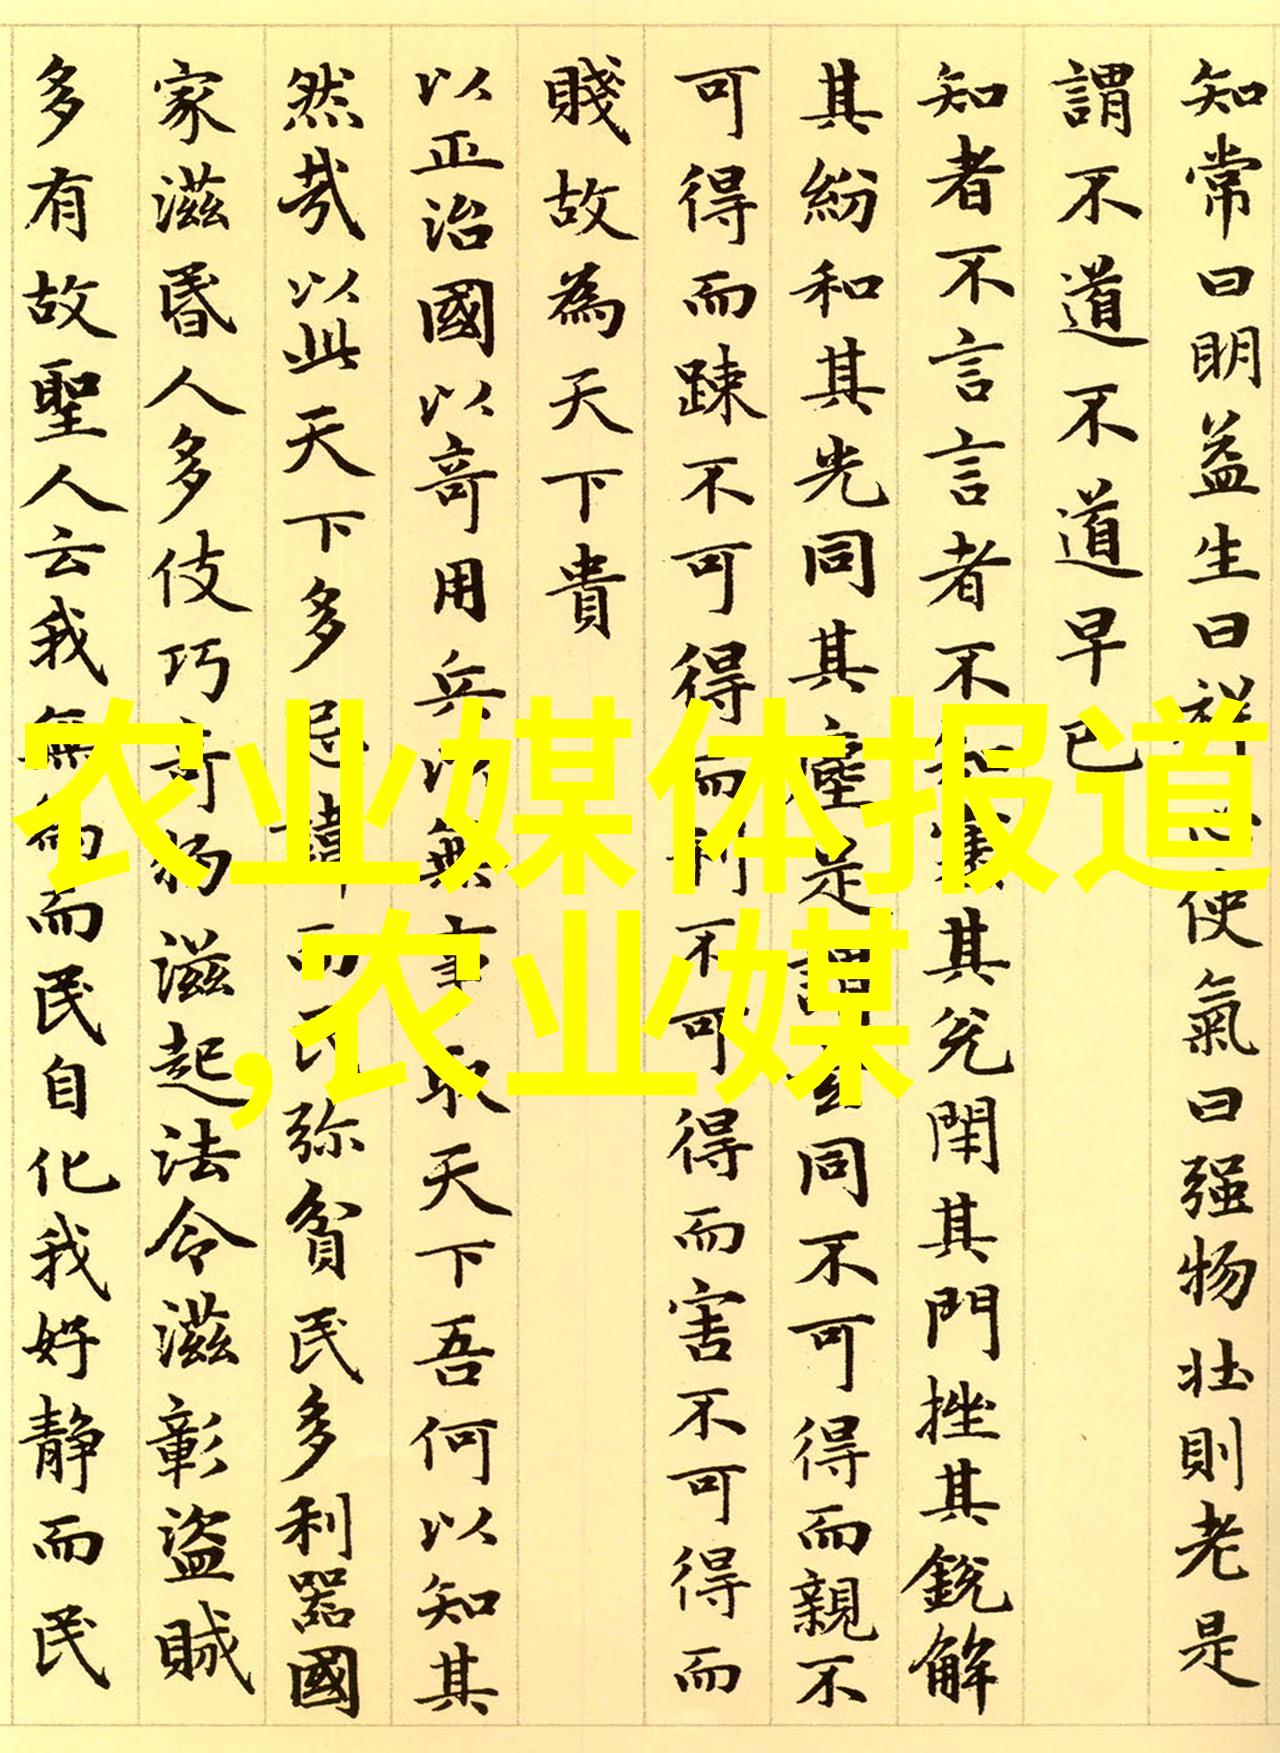 知常曰明益生曰祥心使氣曰强物壯則老是
謂不道不道早已
知者不言言者不知塞其兑閇其門挫其銳解
其紛和其光同其塵是謂玄同不可得而親不
可得而踈不可得而利不可得而害不可得而
賤故為天下貴
以正治國以竒用兵以無事取天下吾何以知其
然㢤以此天下多忌諱而民弥貧民多利器國
家滋昬人多伎巧奇物滋起法令滋彰盗賊
多有故聖人云我無為而民自化我好静而民
农业媒体报道
,农业媒